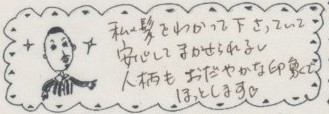 私の髪をわかって下さっていて
安心してまかせられるし
人柄もおだやかな印象で
ほっとします♡